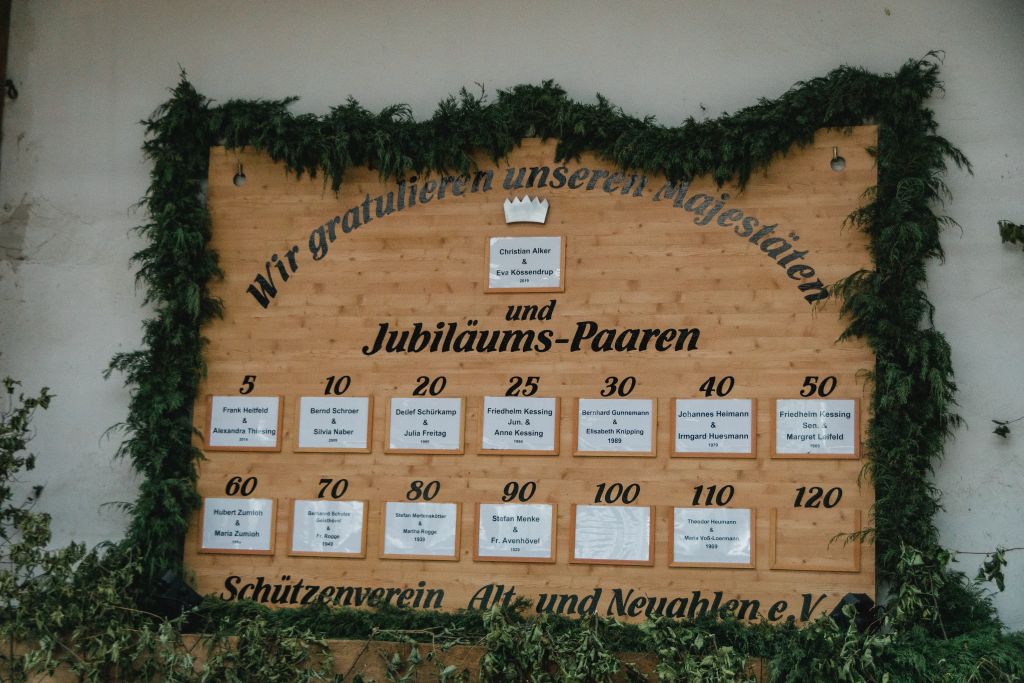 Wir gratulieren unseren Majestäten
Christian Alker
&
Eva Kössendrup
2019
und
Jubiläums-Paaren
5 10 20 25 30 40 50
Frank Heitfeld
&
Alexandra Thiesing
2014
Bernd Schroer
&
Silvia Naber
2009
Detlef Schürkamp
&
Julia Freitag
1999
Friedhelm Kessing
Jun. &
Anne Kessing
1994
Bernhard Gunnemann
&
Elisabeth Knipping
1989
Johannes Heimann
&
Irmgard Huesmann
1979
Friedhelm Kessing
Sen. &
Margret Leifeld
60 70 80 90 100 110 120
Hubert Zumloh
&
Maria Zumloh
Bernhard Schulze
Geisthövel
&
Fr. Rogge
1949
Stefan Mertenskötter
&
Martha Rogge
1939
Stefan Menke
&
Fr. Avenhövel
1929
Theodor Heumann
&
Maria Voß-Loermann
1909
Schützenverein Alt- und Neuahlen e.V.